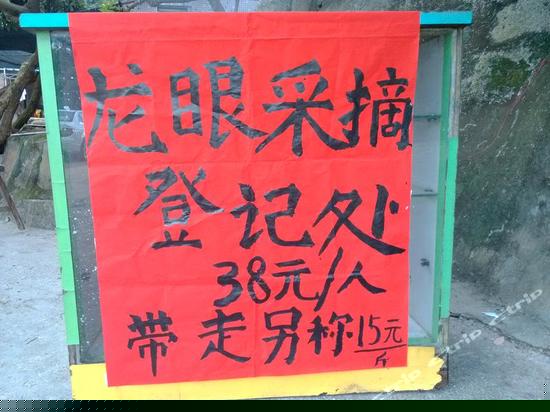 龙眼采摘
登记处
38元/人
带走另称15元/斤
trip trip trip